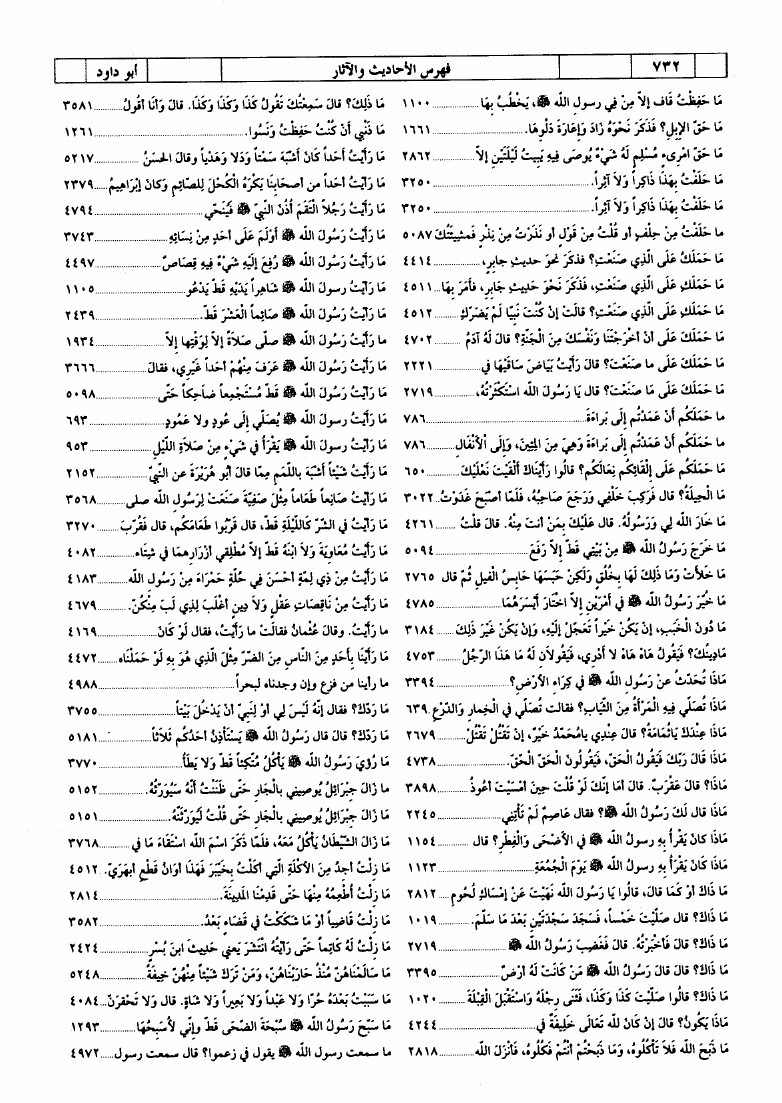 ٧٣٢
فهرس الأحاديث والآثار
أبو داود
مَا حَفِظْتُ قاف إلاَّ مِنْ فِي رسولِ الله ﷺ، يَخْطُبُ بِهَا ١١٠٠
مَا حَقّ الإِبِلِ؟ فَذَكَرَ نَحْوَهُ زَادَ وَإِعَارَةُ دَلْوِهَا. ١٦٦١
مَا حَقّ امْرِىءٍ مُسْلِمٍ لَهُ شَيْءٌ يُوصَى فِيهِ يَبِيتُ لَيْلَتَيْنِ إلاَّ ٢٨٦٢
مَا حَلَفْتُ بِهَذَا ذَاكِراً وَلاَ آثِراً. ٣٢٥٠
مَا حَلَفْتُ بِهَذَا ذَاكِراً وَلاَ آثِراً. ٣٢٥٠
ما حَلَفْتُ مِنْ حِلْفٍ أو قُلْتُ مِنْ قَوْلٍ أو نَذَرْتُ مِنْ نِذْرٍ فَمشِيئَتُكَ ٥٠٨٧
مَا حَمَلَكَ عَلَى الَّذِي صَنَعْتِ؟ فذكَرَ نحوَ حديثِ جابرٍ، ٤٤١٤
مَا حَمَلَكِ عَلَى الَّذِي صَنَعْتِ، فَذَكَرَ نَحْوَ حَدِيثِ جَابِرٍ، فأمَرَ بِهَا ٤٥١١
مَا حَمَلَكِ عَلَى الَّذِي صَنَعْتِ؟ قالَتْ إنْ كُنْتَ نَبِيًا لَمْ يَضُرَّكَ ٤٥١٢
مَا حَمَلَكَ عَلَى أنْ أخْرَجْتَنَا وَنَفْسَكَ مِنَ الْجَنَّةِ؟ قالَ لَهُ آدَمُ ٤٧٠٢
مَا حَمَلَكَ عَلَى ما صَنَعْتَ؟ قالَ رَأيْتُ بَيَاضَ سَاقِهَا في ٢٢٢١
مَا حَمَلَكَ عَلَى مَا صَنَعْتَ؟ قالَ يَا رَسُولَ الله اسْتَكْثَرْتُهُ، ٢٧١٩
ما حَمَلَكُم أنْ عَمَدْتُم إلَى بَرَاءَةَ ٧٨٦
ما حَمَلَكُم أنْ عَمَدْتُم إلَى بَرَاءَةَ وَهِيَ مِنَ المِئِينَ، وَإلَى الأنْفَالِ ٧٨٦
مَا حَمَلَكُم عَلَى إلْقَائِكُم نِعَالَكُم؟ قالُوا رَأيْنَاكَ ألْقَيْتَ نَعْلَيْكَ ٦٥٠
مَا الْحِيلَةُ؟ قال فَرَكِبَ خَلْفِي وَرَجَعَ صَاحِبُهُ، فَلَمَّا أصْبَحَ غَدَوْتُ ٣٠٢٢
مَا خَارَ الله لِي وَرَسُولُهُ. قال عَلَيْكَ بِمَنْ أنتَ مِنْهُ. قال قلتُ ٤٢٦١
مَا خَرَجَ رَسُولُ الله ﷺ مِنْ بَيْتِي قَطّ إلاَّ رَفَعَ ٥٠٩٤
مَا خَلأَتْ وَمَا ذَلِكَ لَهَا بِخُلُقٍ وَلَكِنْ حَبَسَهَا حَابِسُ الْفِيلِ ثُمّ قال ٢٧٦٥
مَا خُيِّرَ رَسُولُ الله ﷺ في أمْرَيْنِ إلاَّ اخْتَارَ أيْسَرَهُمَا ٤٧٨٥
مَا دُونَ الْخَبَبِ، إنْ يَكُنْ خَيْراً تَعَجَّلْ إلَيْهِ، وَإنْ يَكُنْ غَيْرَ ذَلِكَ ٣١٨٤
مَادِينُكَ؟ فَيَقُولُ هَاهْ هَاهْ لا أدْرِي، فَيَقُولاَنِ لَهُ مَا هَذَا الرَّجُلُ ٤٧٥٣
مَاذَا تُحَدِّثُ عنْ رَسُولِ الله ﷺ في كِرَاءِ الأرْضِ؟ ٣٣٩٤
مَاذَا تُصَلِّي فِيهِ الْمَرْأةُ مِنَ الثِّيَابِ؟ فقالت تُصَلِّي في الْخِمارِ وَالدِّرْعِ ٦٣٩
مَاذَا عِنْدَكَ يَاثُمَامَةُ؟ قالَ عِنْدِي يامُحَمَّدُ خَيْرٌ، إنْ تَقْتُلْ تَقْتُلْ ٢٦٧٩
مَاذَا قَالَ رَبّكَ فَيَقُولُ الْحَقَّ، فَيَقُولُونَ الْحَقّ الْحَقّ. ٤٧٣٨
مَاذَا؟ قال عَقْرَبٌ. قالَ أمَا إنَّكَ لَوْ قُلْتَ حِينَ أمْسَيْتَ أعُوذُ ٣٨٩٨
مَاذَا قال لَكَ رَسُولُ الله ﷺ؟ فقال عَاصِمٌ لَمْ تَأْتِنِي ٢٢٤٥
مَاذَا كَانَ يَقْرَأُ بِهِ رسولُ الله ﷺ في الأضْحَى وَالْفِطْرِ؟ قال ١١٥٤
مَاذَا كَانَ يَقْرَأُ بِهِ رسولُ الله ﷺ يَوْمَ الْجُمُعَةِ ١١٢٣
مَا ذَاكَ أوْ كَمَا قَالَ، قالُوا يَا رَسُولَ الله نَهَيْتَ عَنْ إمْسَاكِ لُحُومِ ٢٨١٢
مَا ذَاكَ؟ قال صَلَّيْتَ خَمْساً، فَسَجَدَ سَجْدَتَيْنِ بَعْدَ مَا سَلَّمَ. ١٠١٩
مَا ذَاكَ؟ قال فَأخْبَرْتُهُ. قالَ فَغَضِبَ رَسُولُ الله ﷺ ٢٧١٩
مَا ذَاكَ؟ قالَ قالَ رَسُولُ الله ﷺ مَنْ كَانَتْ لَهُ أرْضٌ ٣٣٩٥
مَا ذَاكَ؟ قالُوا صَلَّيْتَ كَذَا وَكَذَا، فَثَنَى رِجْلَهُ وَاسْتَقْبَلَ الْقِبْلَةَ ١٠٢٠
مَاذَا يَكُونُ؟ قالَ إنْ كَانَ لله تَعَالَى خَلِيفَةٌ في ٤٢٤٤
مَا ذَبَحَ الله فَلاَ تَأْكُلُوهُ، وَمَا ذَبَحْتُمْ أنْتُمْ فَكُلُوهُ، فأنْزَلَ الله ٢٨١٨
مَا ذَلِكَ؟ قالَ سَمِعْتُكَ تَقُولُ كَذَا وَكَذَا وَكَذَا. قالَ وَأنَا أقُولُ ٣٥٨١
مَا ذَنْبِي أنْ كُنْتُ حَفِظْتُ وَنَسُوا. ١٢٦١
مَا رَأيْتُ أحَداً كَانَ أشْبَهَ سَمْتاً وَدَلا وَهَدْياً وقال الْحَسَنُ ٥٢١٧
مَا رَأيْتُ أحَداً من أصحابِنَا يَكْرَهُ الْكُحْلَ لِلصَّائِمِ وَكانَ إبْرَاهِيمُ ٢٣٧٩
مَا رَأيْتُ رَجُلاً الْتَقَمَ أذُنَ النَّبيّ ﷺ فَيُنَحِّي ٤٧٩٤
مَا رَأيْتُ رَسُولَ الله ﷺ أوْلَمَ عَلَى أحَدٍ مِنْ نِسَائِهِ ٣٧٤٣
مَا رَأيْتُ رَسُولَ الله ﷺ رُفِعَ إلَيْهِ شَيْءٌ فِيهِ قِصَاصٌ ٤٤٩٧
مَا رَأيْتُ رَسُولَ الله ﷺ شَاهِراً يَدَيْهِ قَطّ يَدْعُو ١١٠٥
مَا رَأيْتُ رَسُولَ الله ﷺ صَائِماً الْعَشْرَ قَطّ. ٢٤٣٩
ما رَأيْتُ رَسُولَ الله ﷺ صلّى صَلاَةً إلاَّ لِوَقْتِهَا إلاَّ ١٩٣٤
مَا رَأيْتُ رَسُولَ الله ﷺ عَرَفَ مِنْهُمْ أحَداً غَيْرِي، فقالَ ٣٦٦٦
مَا رَأيْتُ رَسُولَ الله ﷺ قَطّ مُسْتَجْمِعاً ضَاحِكاً حَتَّى ٥٠٩٨
مَا رَأيْتُ رسولَ الله ﷺ يُصَلِّي إلَى عُودٍ ولا عَمُودٍ ٦٩٣
مَا رَأيْتُ رسولَ الله ﷺ يَقْرَأُ في شَيْءٍ مِنْ صَلاَةِ اللَّيْلِ ٩٥٣
مَا رَأيْتُ شَيْئاً أشْبَهَ باللَّمَمِ مِمَّا قالَ أبُو هُرَيْرَةَ عن النَّبيِّ ٢١٥٢
مَا رَأيْتُ صَانِعاً طَعَاماً مِثْلَ صَفِيَّةَ صَنَعَتْ لِرَسُولِ الله صلى ٣٥٦٨
مَا رَأيْتُ في الشَّرّ كاللَّيْلَةِ قَطّ، قال قَرِّبُوا طَعَامَكُم، قال فَقُرِّبَ ٣٢٧٠
مَا رَأيْتُ مُعَاوِيَةَ وَلاَ ابْنَهُ قَطّ إلاَّ مُطْلِقِي أزْرَارِهِمَا في شِتَاءٍ ٤٠٨٢
مَا رَأيْتُ مِنْ ذِي لِمَّةٍ أحْسَنَ في حُلَّةٍ حَمْرَاءَ مِنْ رَسُولِ الله ٤١٨٣
مَا رَأيْتُ مِنْ نَاقِصَاتِ عَقْلٍ وَلاَ دِينٍ أغْلَبَ لِذِي لُبَ مِنْكُنّ. ٤٦٧٩
ما رَأيْتُ. وقالَ عُثْمانُ فقالَتْ ما رَأيْتُ، فقال لَوْ كَانَ ٤١٦٩
مَا رَأيْنَا بِأحَدٍ مِنَ النَّاسِ مِنَ الضّرِّ مِثْلَ الَّذِي هُوَ بِهِ لَوْ حَمَلْنَاه ٤٤٧٢
ما رأينا من فزع وإن وجدناه لبحراً ٤٩٨٨
مَا رَدَّكَ؟ فقال إنَّهُ لَيْسَ لِي أوْ لِنَبِيّ أنْ يَدْخُلَ بَيْتاً ٣٧٥٥
مَا رَدَّكَ؟ قال قال رَسُولُ الله ﷺ يَسْتَأْذِنُ أحَدُكُم ثَلاَثاً ٥١٨١
مَا رُؤِيَ رَسُولُ الله ﷺ يَأْكُلُ مُتَّكِئاً قَطّ وَلا يَطَأُ ٣٧٧٠
ما زَالَ جِبْرَائِلُ يُوصِينِي بالْجَارِ حَتَّى ظَنَنْتُ أنَّهُ سَيُوَرِّثُهُ. ٥١٥٢
مَا زَالَ جِبْرَائِلُ يُوصِينِي بالْجَارِ حَتَّى قُلْتُ لَيُوَرِّثَنَّهُ. ٥١٥١
مَا زَالَ الشَّيْطَانُ يَأْكُلُ مَعَهُ، فَلَمَّا ذَكَرَ اسْمَ الله اسْتَقَاءَ مَا في ٣٧٦٨
مَا زِلْتُ أجِدُ مِنَ الأكْلَةِ الَّتِي أكَلْتُ بِخَيْبَرَ فَهَذَا أوَانُ قَطْعِ أبْهَرِيّ. ٤٥١٢
مَا زِلْتُ أُطْعِمُهُ مِنْهَا حَتَّى قَدِمْنَا المَدِينَةَ. ٢٨١٤
مَا زِلْتُ قَاضِياً أوْ مَا شَكَكْتُ في قَضَاءٍ بَعْدُ. ٣٥٨٢
مَا زِلْتُ لَهُ كَاتِماً حَتَّى رَأيْتُهُ انْتَشَرَ يَعني حَدِيثَ ابنِ بُسْرٍ ٢٤٢٤
مَا سَالَمْنَاهُنّ مُنْذُ حَارَبْنَاهُنّ، وَمَنْ تَرَكَ شَيْئاً مِنْهُنّ خِيفَةً ٥٢٤٨
مَا سَبَيْتُ بَعْدَهُ حُرًا وَلا عَبْداً وَلا بَعِيراً وَلا شَاةٍ. قال وَلا تَحْقِرَنّ ٤٠٨٤
مَا سَبّحَ رَسُولُ الله ﷺ سُبْحَةَ الضّحَى قَطّ وَإنِّي لأُسَبِّحُهَا ١٢٩٣
ما سمعت رسول الله ﷺ يقول في زعموا؟ قال سمعت رسول ٤٩٧٢